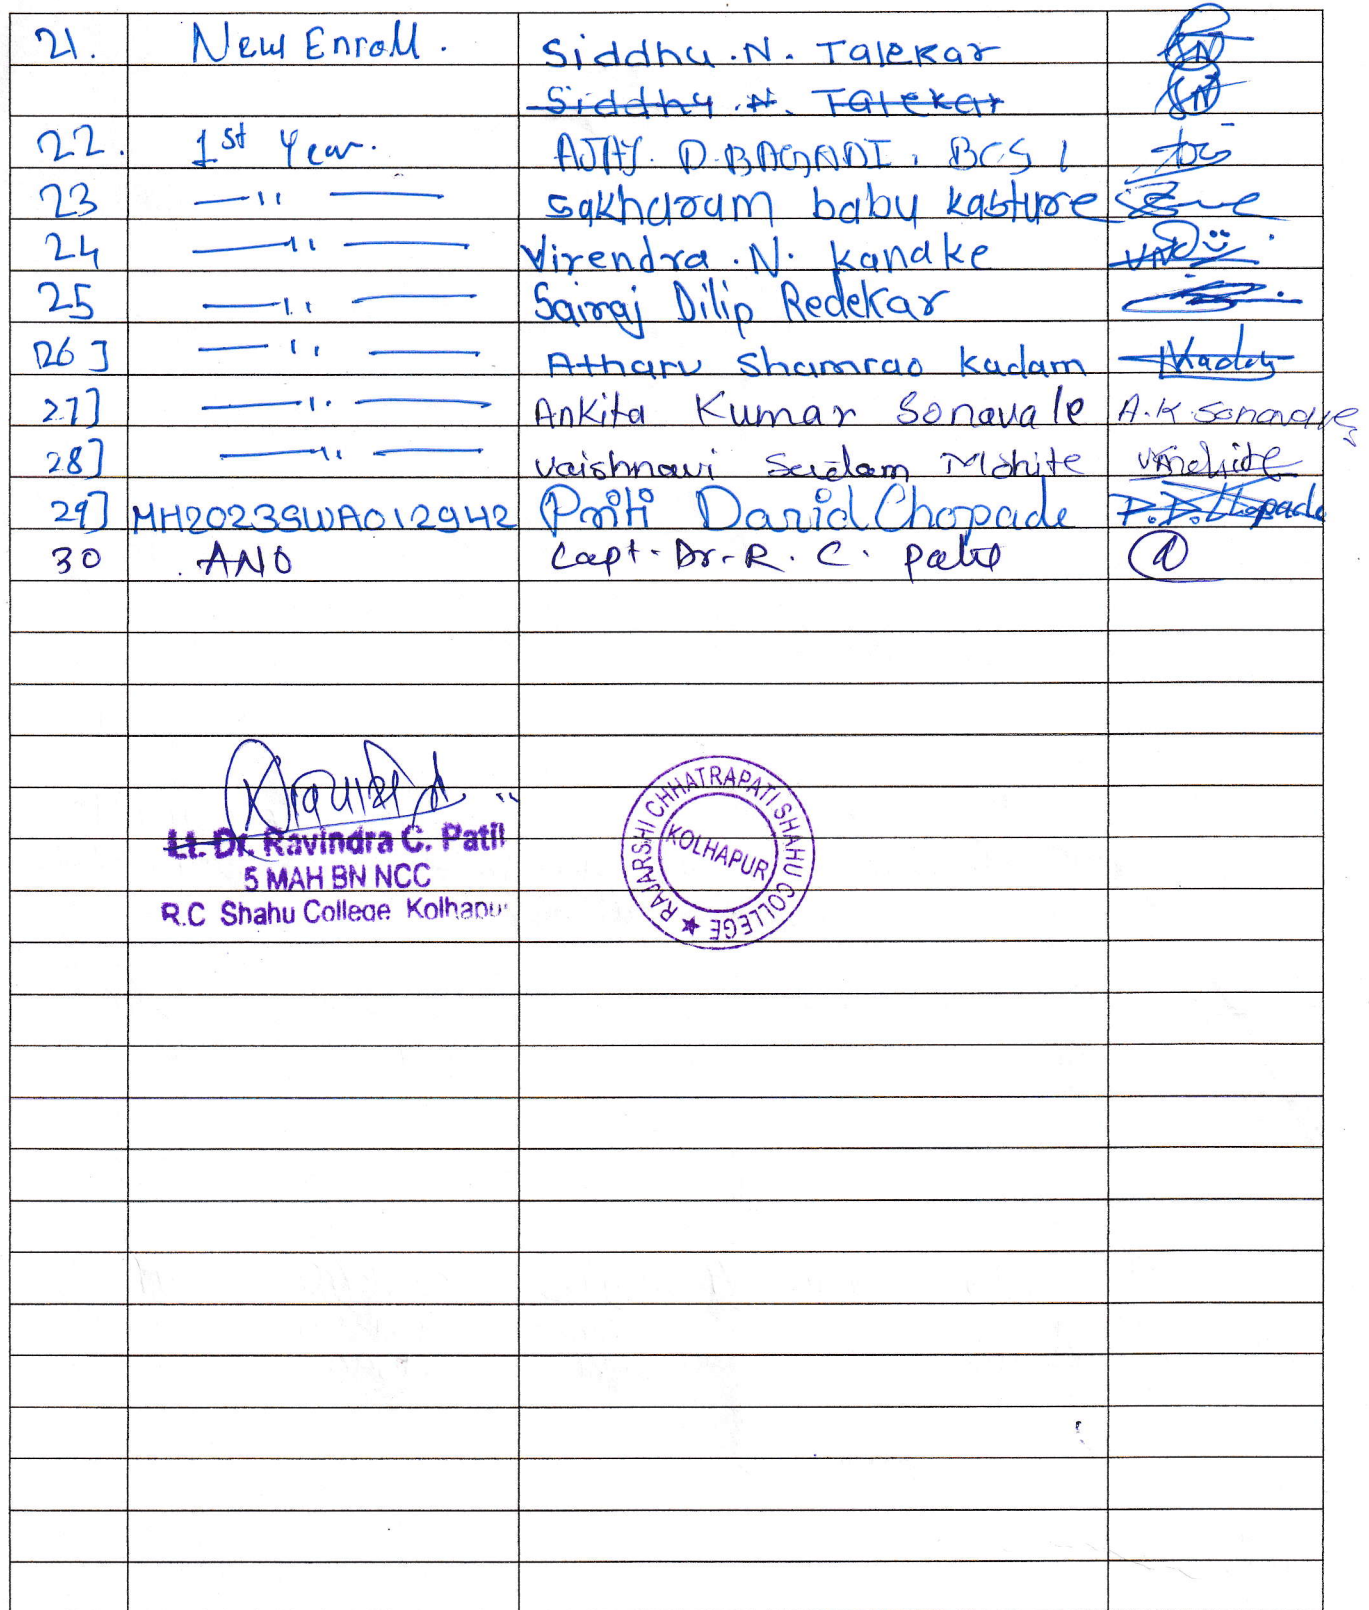 21. New Enroll. Siddhu.N. Talekar SN
Siddhu .N. Talekar SN
22. 1st Year. AJAY. D. BAGADI. BCS 1
23 —"— sakharam babu kasture
24 —"— Virendra .N. kanake VNO
25 —"— Sairaj Dilip Redekar
26] —"— Atharv Shamrao Kadam AKadam
27] —"— Ankita Kumar Sonavale A.K.Sonavale
28] —"— vaishnavi Sudam Mohite vmohite
29] MH2023SWA012942 Priti David Chopade P.D.Chopade
30 ANO Capt. Dr. R. C. Patil
Lt. Dr. Ravindra C. Patil
5 MAH BN NCC
R.C Shahu College Kolhapur
RAJARSHI CHHATRAPATI SHAHU COLLEGE ★
KOLHAPUR